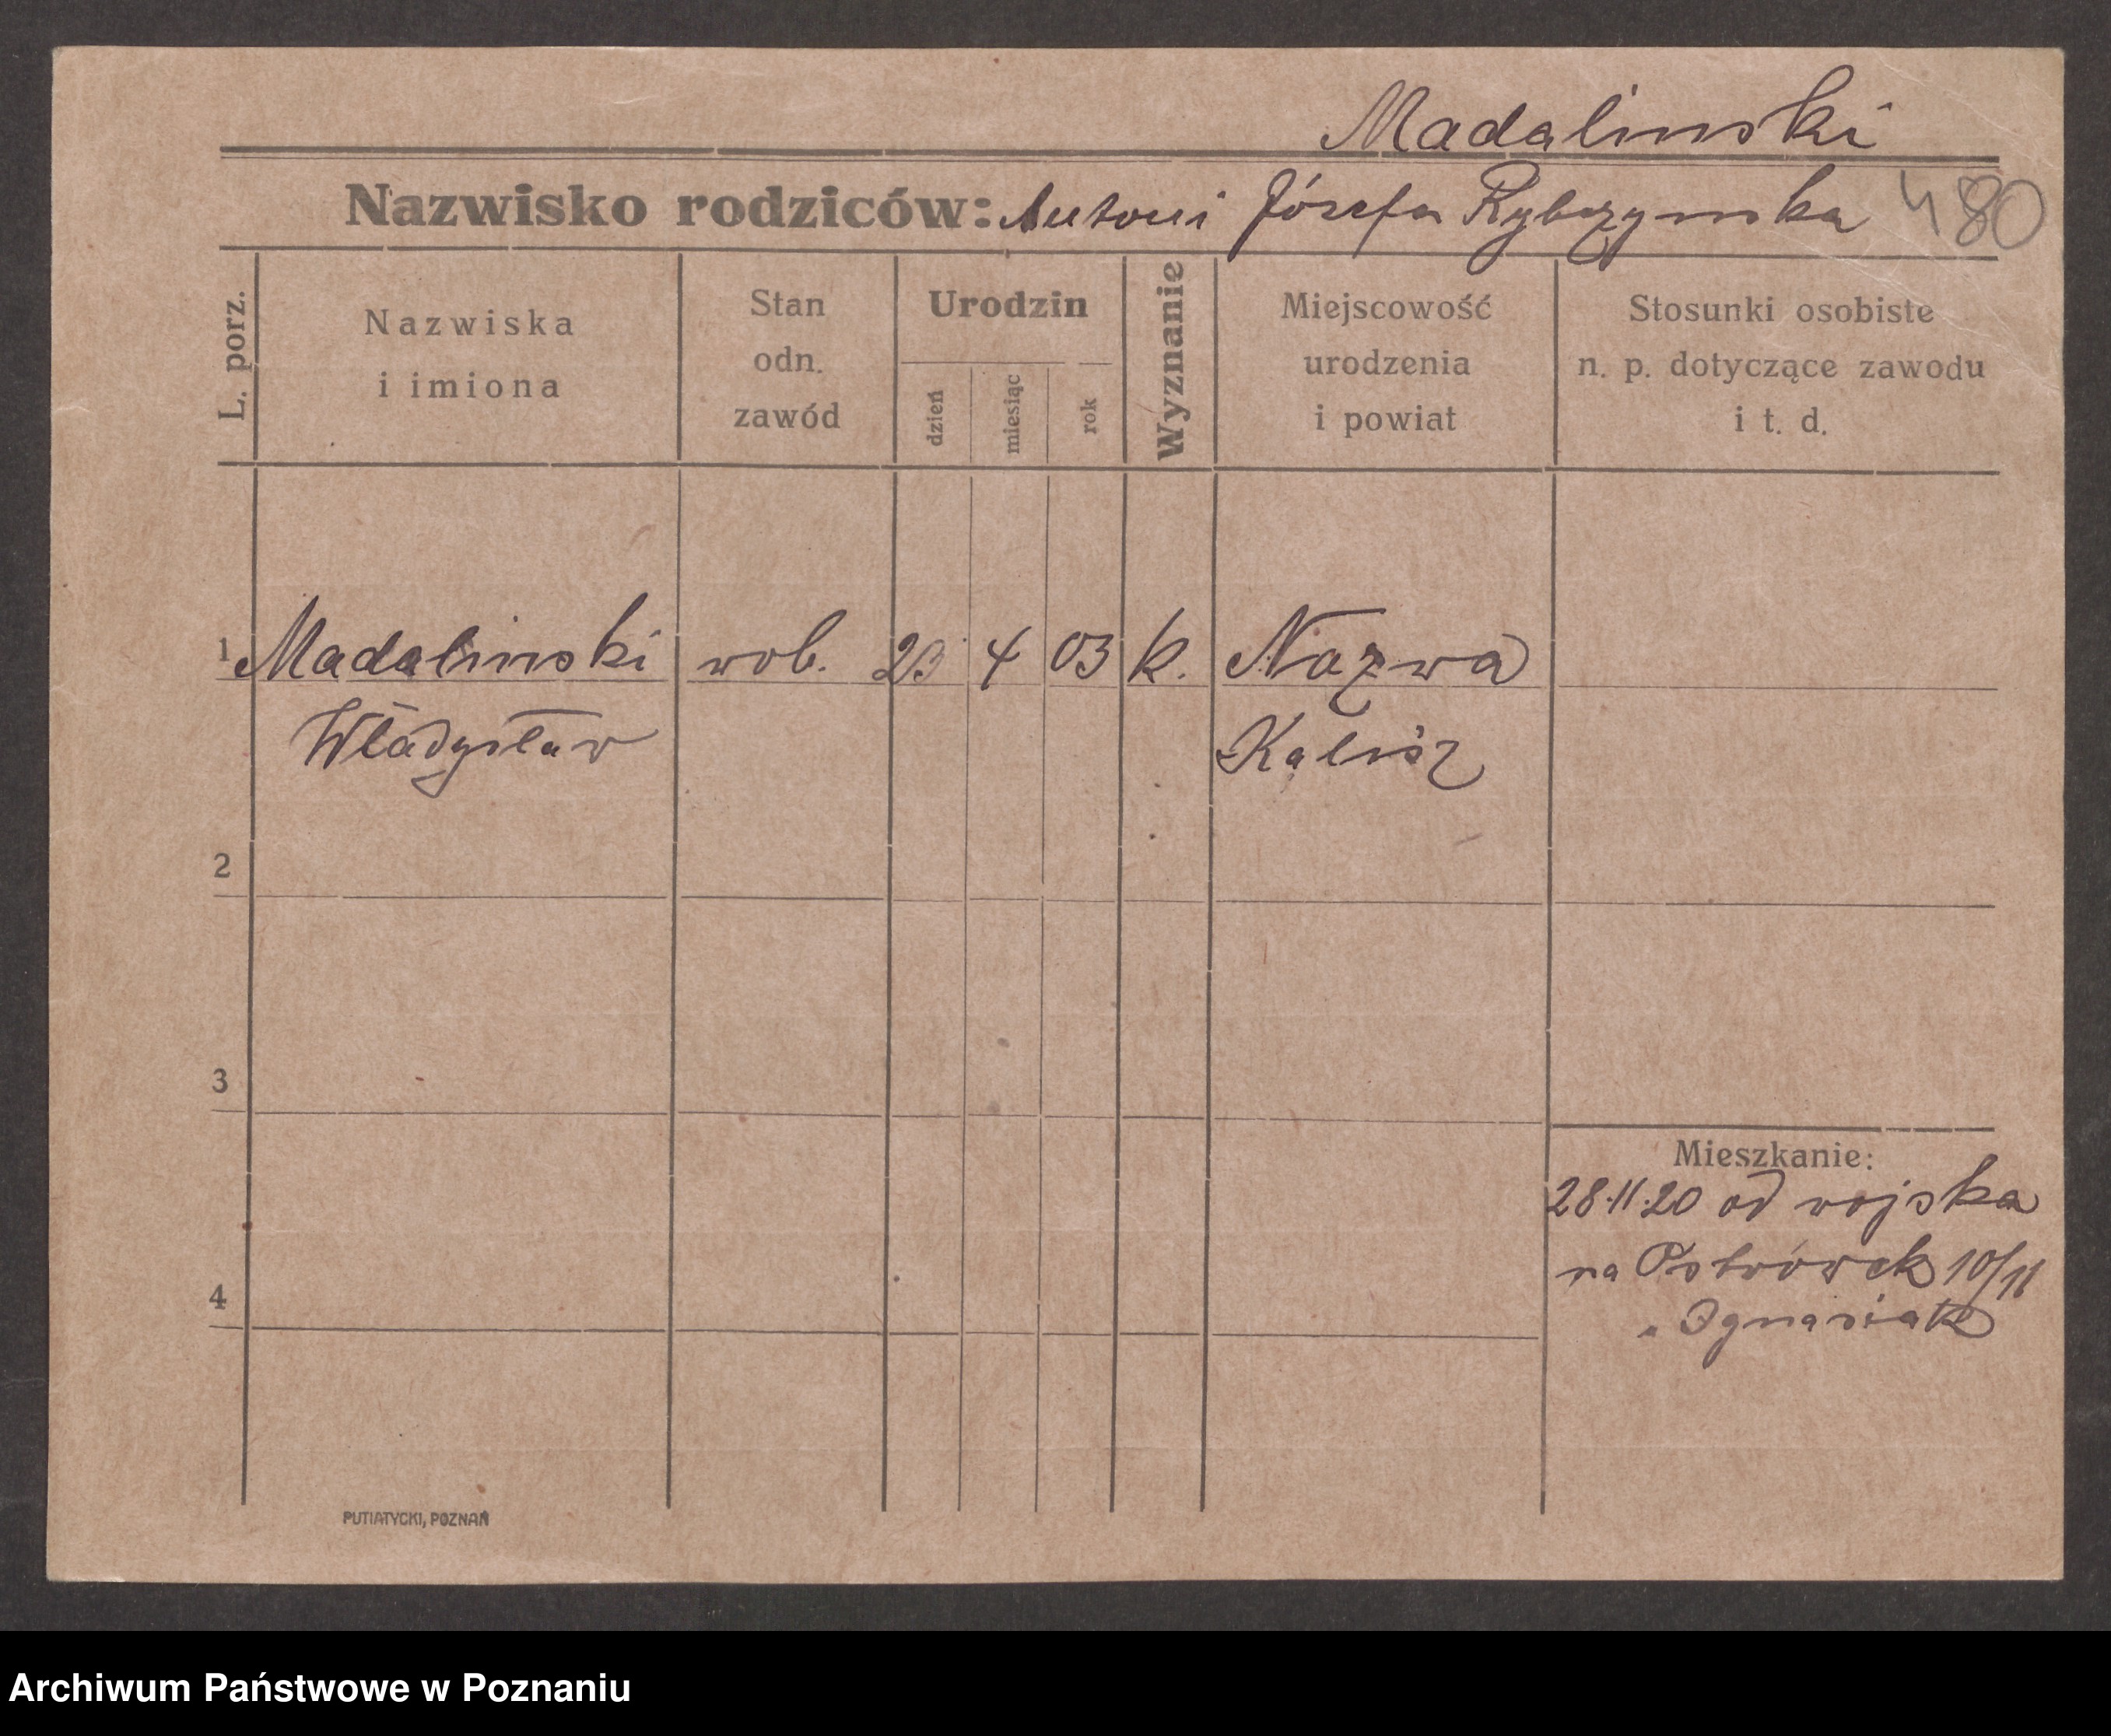 Madalinski
Nazwisko rodziców: Antoni Józefa Rybczynska 480
L. porz.
Nazwiska
i imiona
Stan
odn.
zawód
Urodzin
dzień
miesiąc
rok
Wyznanie
Miejscowość
urodzenia
i powiat
Stosunki osobiste
n. p. dotyczące zawodu
i t. d.
1 Madalinski wob. 23 4 03 k. Nazwa
Władysław Kalisz
2
3
4
Mieszkanie:
28.11.20 od wojska
na Ostrówek 10/11
Ignasiak
PUTIATYCKI, POZNAŃ
Archiwum Państwowe w Poznaniu